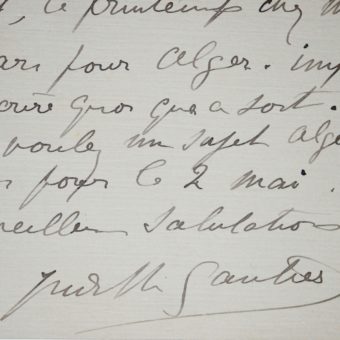 , le printemps chez m
ars pour Alger. imp
crire quoi que ce soit.
voulez un sujet alge
s pour le 2 mai.
eilleurs salutations
Judith Gautier